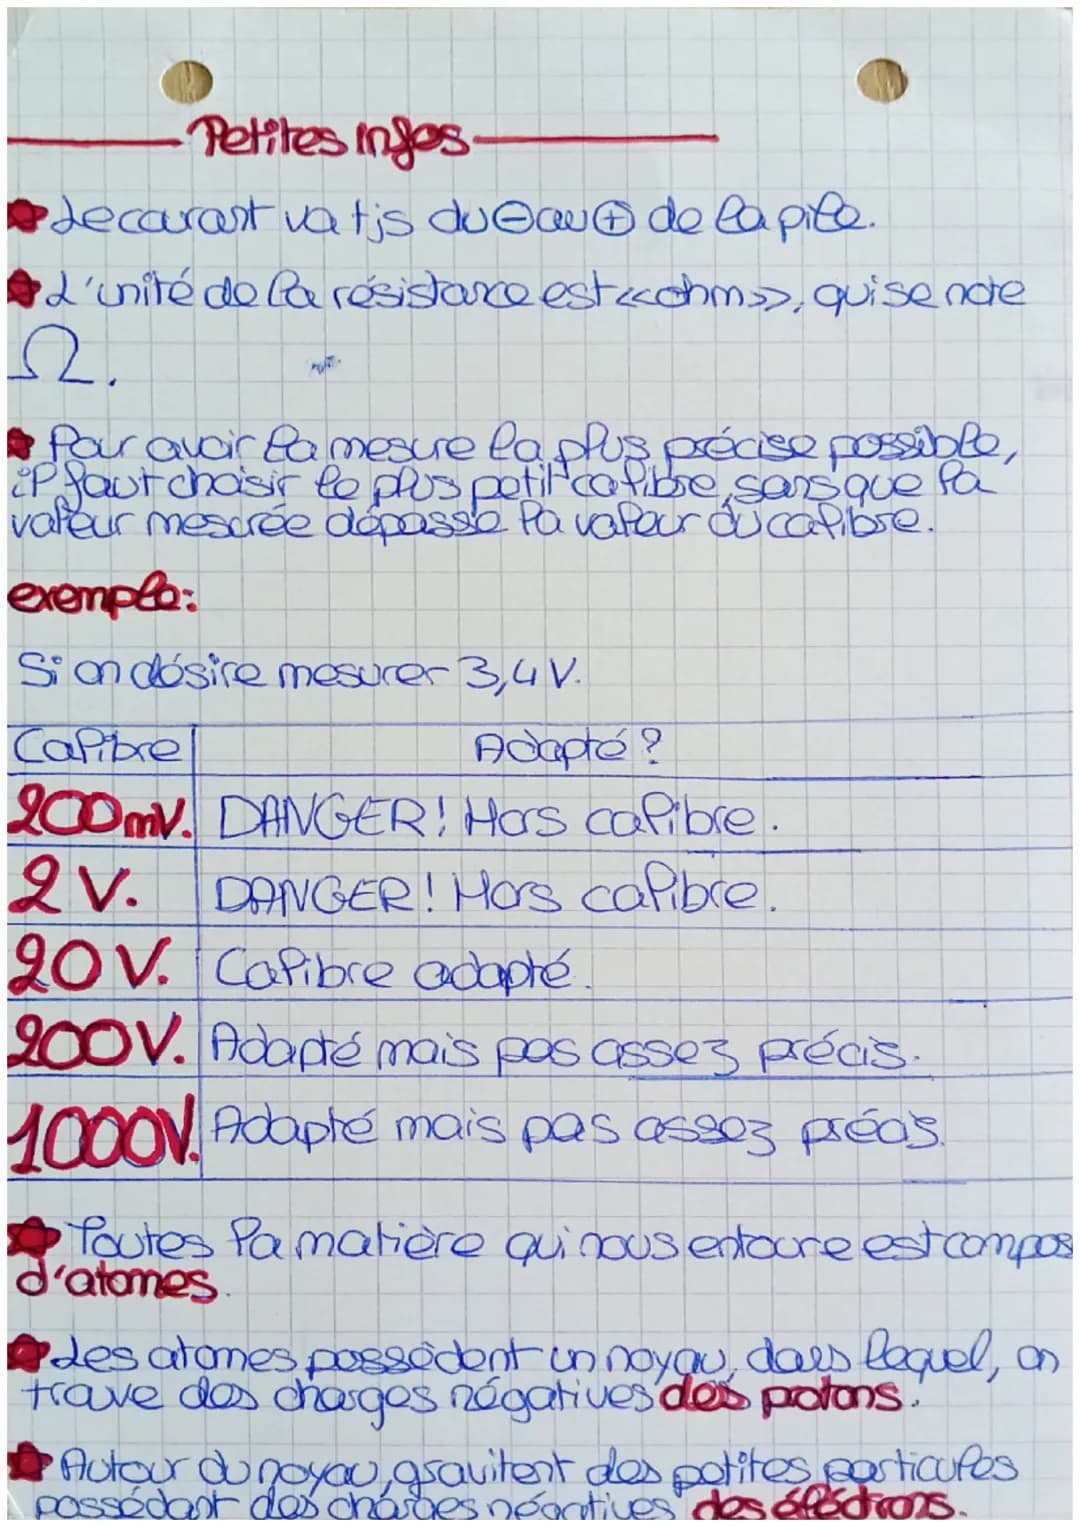 Petites infos
Le courant va tjs du ⊖ au ⊕ de la pile.
L'unité de la résistance est <<ohm>>, qui se note
Ω.
Pour avoir la mesure la plus précise possible,
il faut choisir le plus petit calibre, sans que la
valeur mesurée dépasse la valeur du calibre.
exemple:
Si on désire mesurer 3,4 V.
Calibre Adapté ?
200mV. DANGER! Hors calibre.
2 V. DANGER! Hors calibre.
20 V. Calibre adapté.
200V. Adapté mais pas assez précis.
1000V. Adapté mais pas assez précis.
Toutes la matière qui nous entoure est compos
d'atomes.
Les atomes possèdent un noyau, dans lequel, on
trouve des charges négatives des protons.
Autour du noyau, gravitent des petites particules
possédant des charges négatives des électrons.